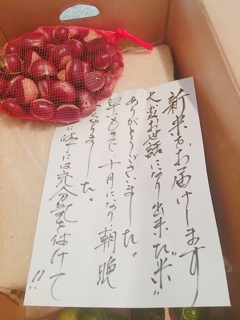 新米をお届けします
大変お世話になり出来た“米”
ありがとうございました。
早いもので十月になり朝晩
なりました。
には充分気を付けて!!